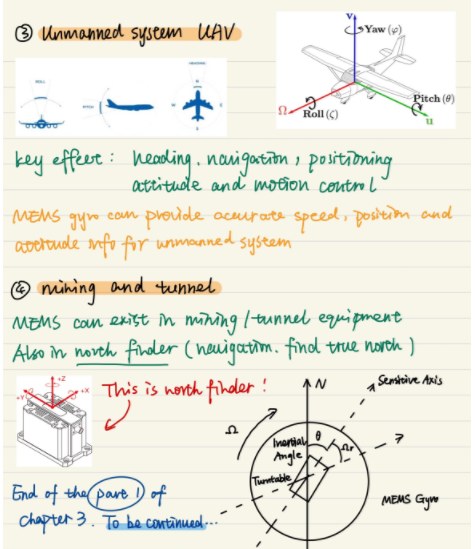 ③ Unmanned system UAV
V
Yaw (φ)
Pitch (θ)
Ω
Roll (ζ)
u
ROLL
PITCH
HEADING
key effect : heading, navigation, positioning
attitude and motion control
MEMS gyro can provide accurate speed, position and
attitude info for unmanned system
④ mining and tunnel
MEMS can exist in mining / tunnel equipment
Also in north finder ( navigation. find true north )
+Z
+Y
+X
This is north finder !
N
Sensitive Axis
Ω
Inertial
Angle
θ
Ωr
Turntable
MEMS Gyro
End of the part 1 of
chapter 3. To be continued...